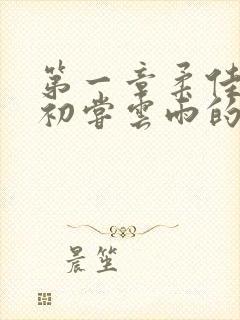 第一章柔佳
初尝云雨的
晨笙